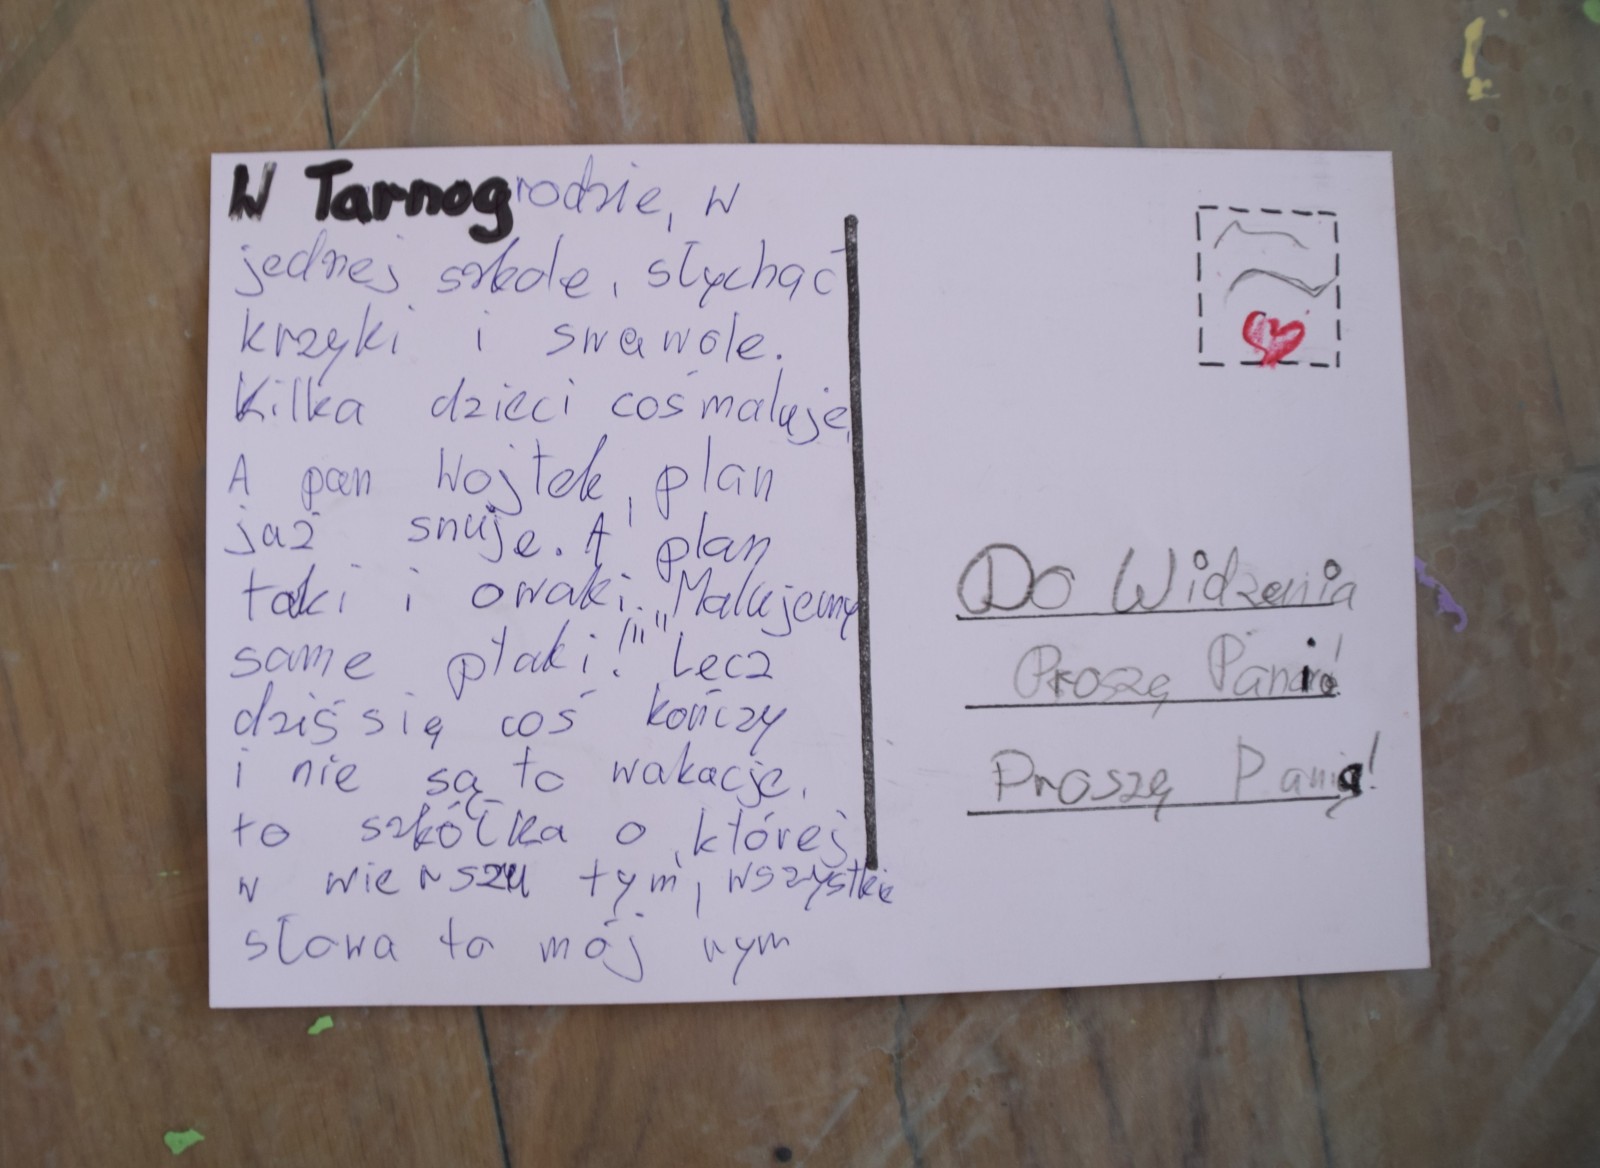 W Tarnogrodzie, w
jednej szkole, słychać
krzyki i swawole.
Kilka dzieci coś maluje,
A pan Wojtek, plan
już snuje. A plan
taki i owaki. "Malujemy
same ptaki!"" Lecz
dziś się coś kończy
i nie są to wakacje,
to szkółka o której
w wierszu tym, wszystkie
słowa to mój rym
Do Widzenia
Proszę Pani!
Proszę Pania!